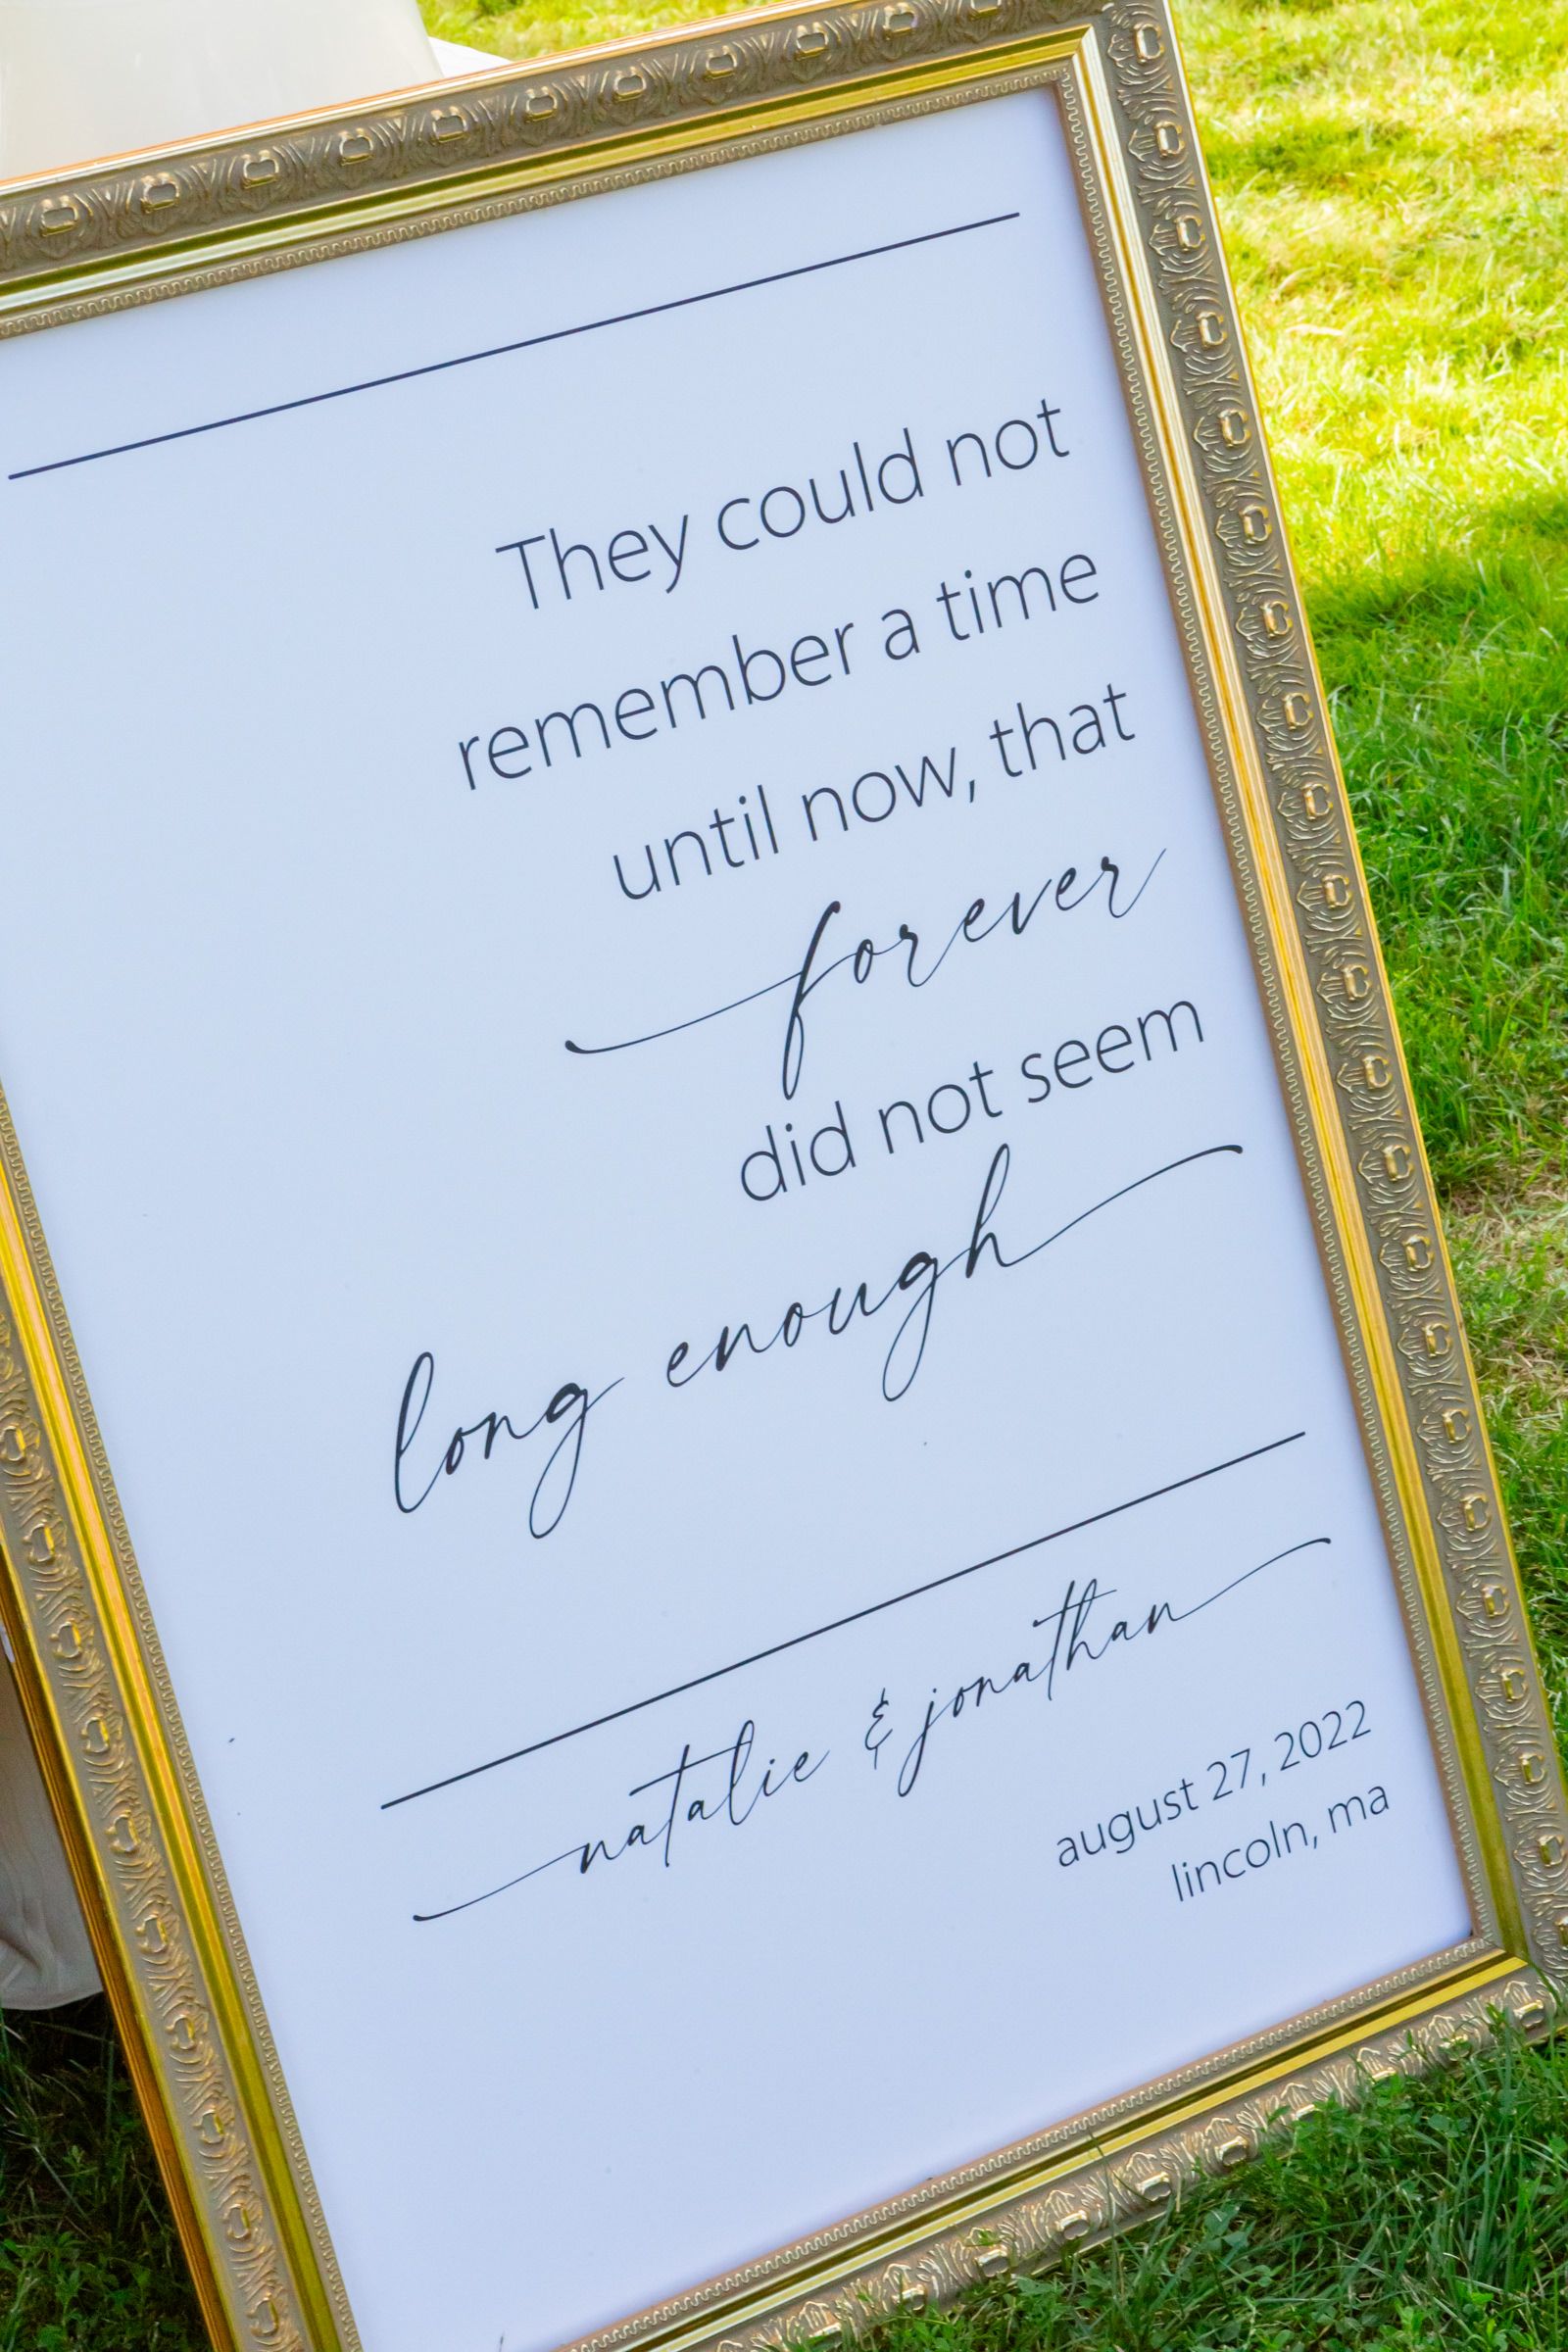 They could not
remember a time
until now, that
forever
did not seem
long enough
natalie & jonathan
august 27, 2022
lincoln, ma